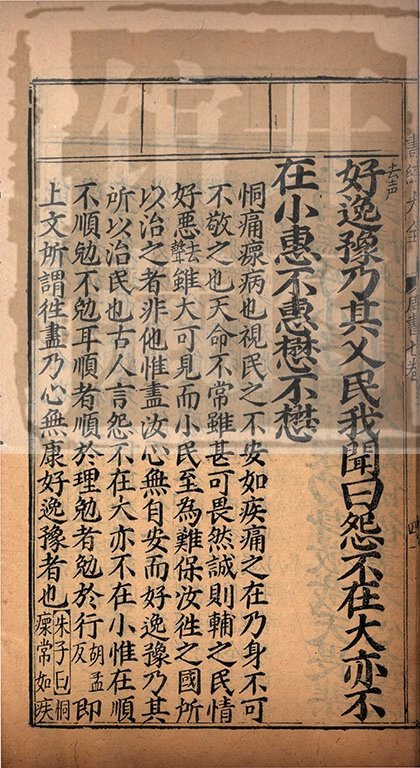 去声
好逸豫乃其乂民我聞曰怨不在大亦不
在小惠不惠懋不懋
恫痛瘝病也視民之不安如疾痛之在乃身不可
不敬之也天命不常雖甚可畏然誠則輔之民情
好惡去聲雖大可見而小民至為難保汝徃之國所
以治之者非他惟盡汝心無自安而好逸豫乃其
所以治民也古人言怨不在大亦不在小惟在順
不順勉不勉耳順者順於理勉者勉於行胡孟反即
上文所謂徃盡乃心無康好逸豫者也朱子曰恫瘝常如疾